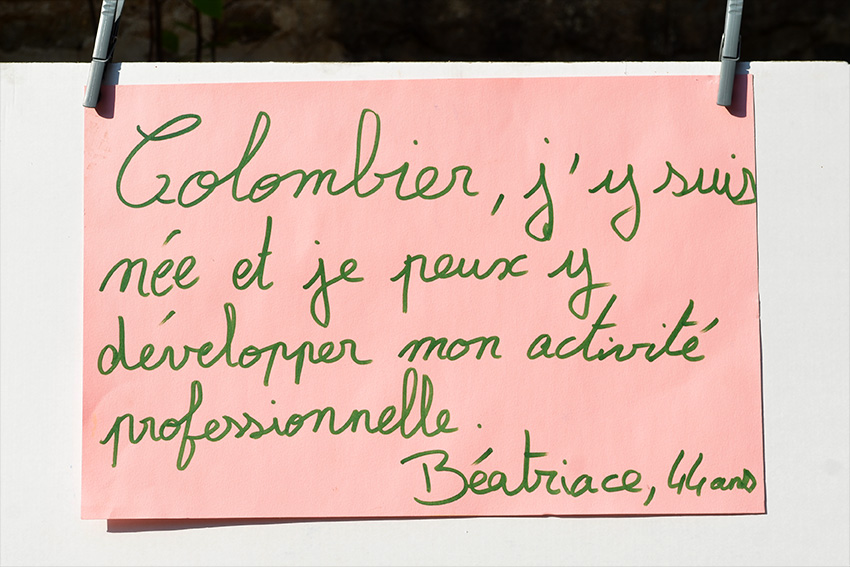 Colombier, j'y suis
née et je peux y
développer mon activité
professionnelle.
Béatriace, 44 ans